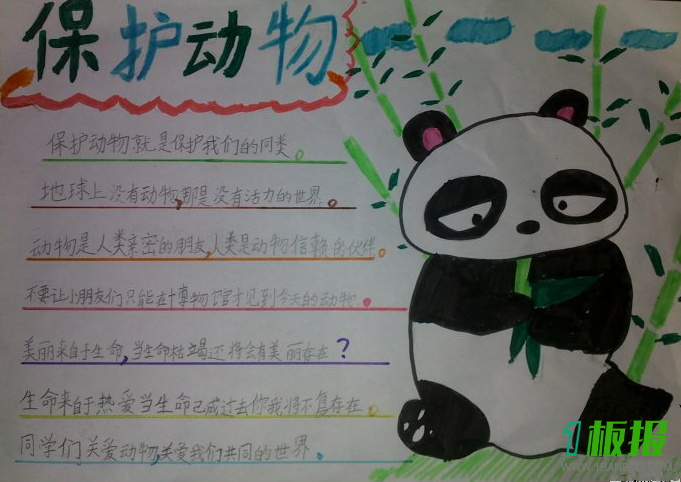 保护动物
保护动物就是保护我们的同类。
地球上没有动物,那是没有活力的世界。
动物是人类亲密的朋友,人类是动物信赖的伙伴。
不要让小朋友们只能在博物馆才见到今天的动物。
美丽来自于生命,当生命枯竭还将会有美丽存在?
生命来于热爱当生命已成过去你我将不复存在。
同学们关爱动物,关爱我们共同的世界。
板报